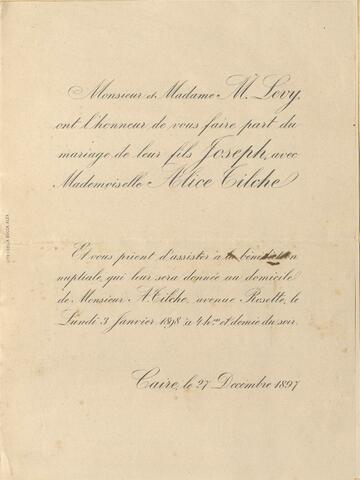 Monsieur et Madame M. Lévy,
ont l'honneur de vous faire part du
mariage de leur fils Joseph, avec
Mademoiselle Alice Tilche
Et vous prient d'assister à la bénédiction
nuptiale, qui leur sera donnée au domicile
de Monsieur A. Tilche, avenue Rosette, le
Lundi 3 Janvier 1898 à 4 h.res et demie du soir.
Caire, le 27 Decembre 1897